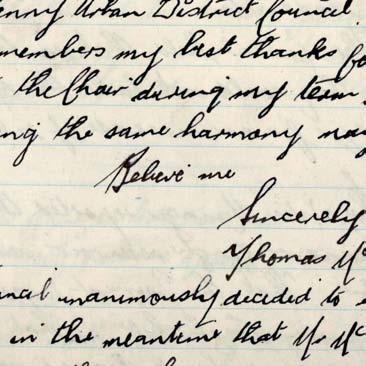 enny Urban District Council.
members my best thanks fo
the Chair during my term
ng the same harmony may
Believe me
Sincerely
Thomas
ncil unanimously decided to
in the meantime that Mr